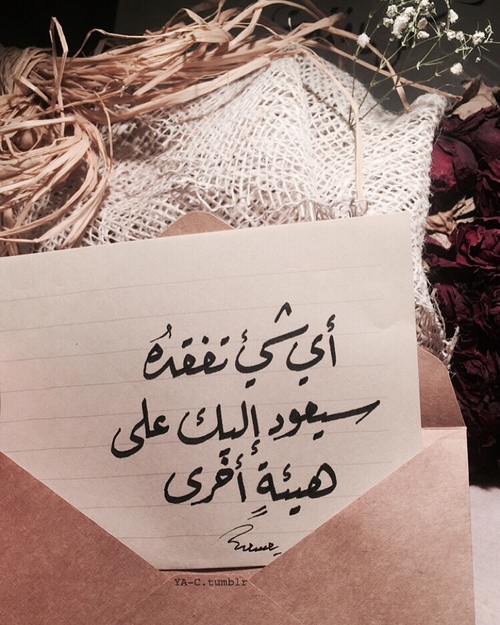 أي شيء تفقدهُ
سيعود إليك على
هيئةٍ أخرى
YA-C.tumblr